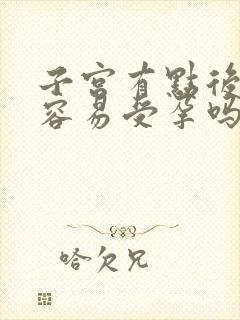 子宫有點後
容易受孕吗
哈欠兄